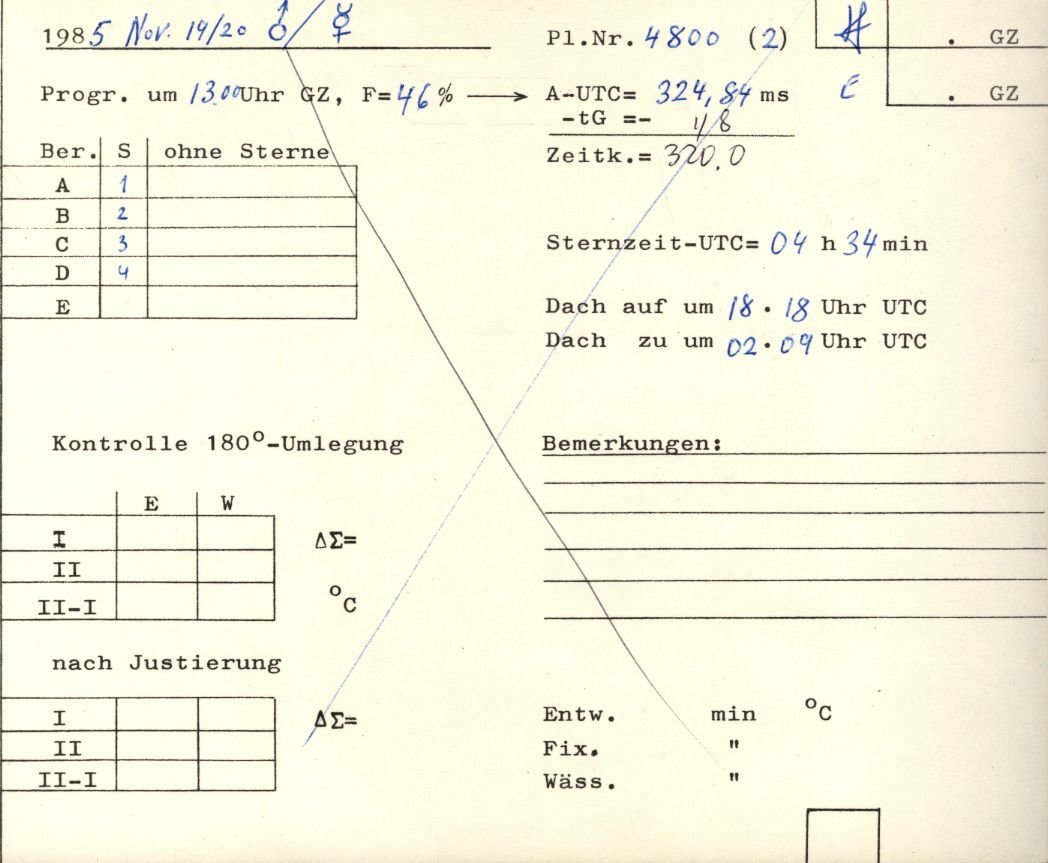 1985 Nov. 19/20 ♂/☿ Pl.Nr. 4800 (2) . GZ
Progr. um 13.00 Uhr GZ, F=46% → A-UTC= 324,84 ms E . GZ
-tG =- 4,8
Ber. S ohne Sterne Zeitk.= 320,0
A 1
B 2
C 3 Sternzeit-UTC= 04 h 34 min
D 4
E Dach auf um 18.18 Uhr UTC
Dach zu um 02.09 Uhr UTC
Kontrolle 180°-Umlegung Bemerkungen:
E W
I ΔΣ=
II
II-I °C
nach Justierung
I ΔΣ= Entw. min °C
II Fix. "
II-I Wäss. "